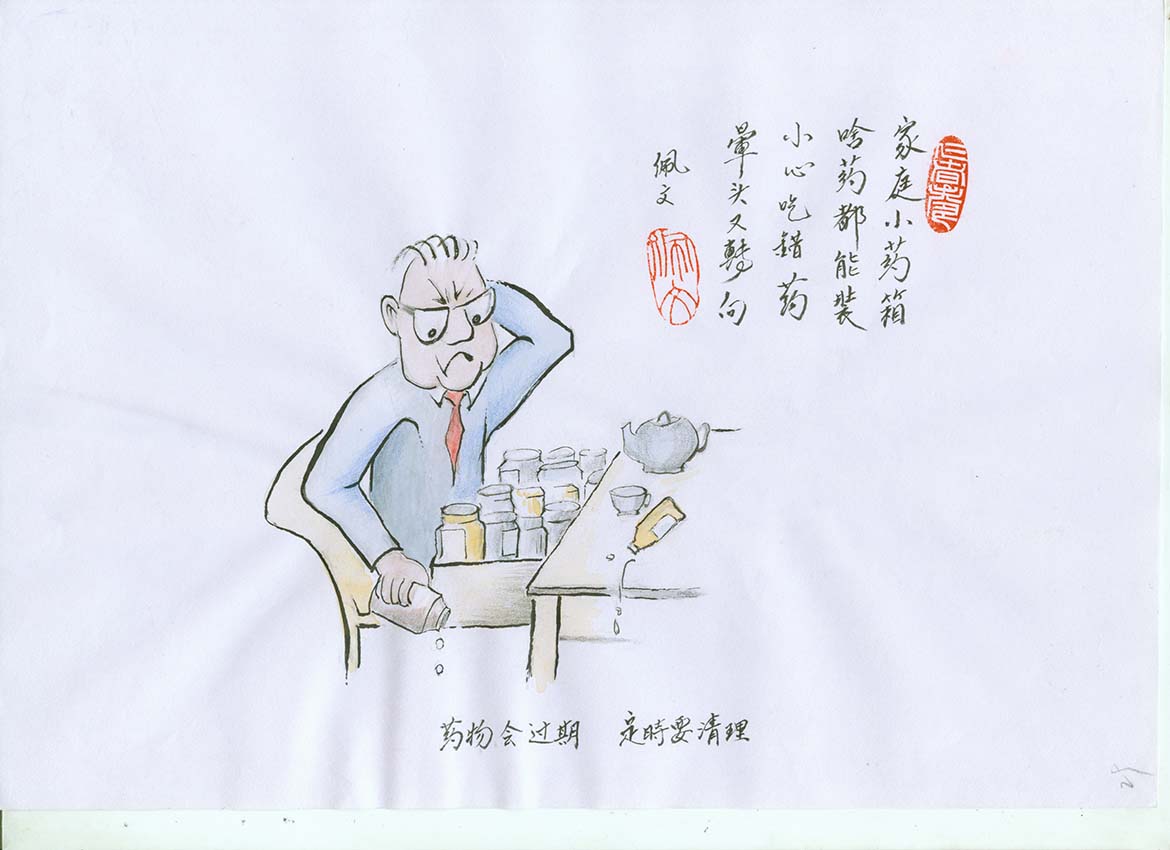 家庭小药箱
啥药都能装
小心吃錯药
暈头又轉向
佩文
佩文
药物会过期 定時要清理